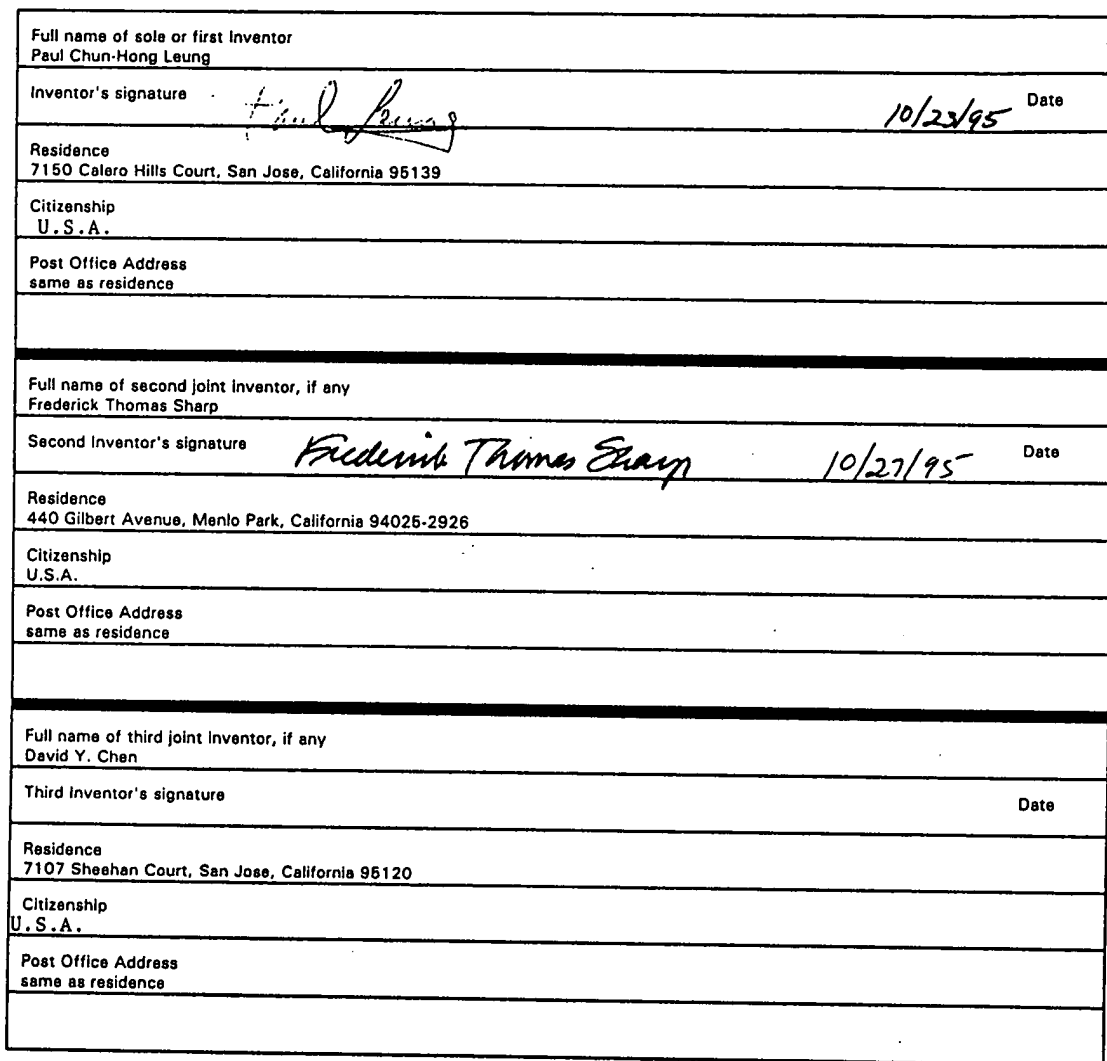 Full name of sole or first Inventor
Paul Chun-Hong Leung
Inventor's signature Paul Leung 10/23/95 Date
Residence
7150 Calero Hills Court, San Jose, California 95139
Citizenship
U.S.A.
Post Office Address
same as residence
Full name of second joint inventor, if any
Frederick Thomas Sharp
Second Inventor's signature Frederick Thomas Sharp 10/27/95 Date
Residence
440 Gilbert Avenue, Menlo Park, California 94025-2926
Citizenship
U.S.A.
Post Office Address
same as residence
Full name of third joint Inventor, if any
David Y. Chen
Third Inventor's signature Date
Residence
7107 Sheehan Court, San Jose, California 95120
Citizenship
U.S.A.
Post Office Address
same as residence